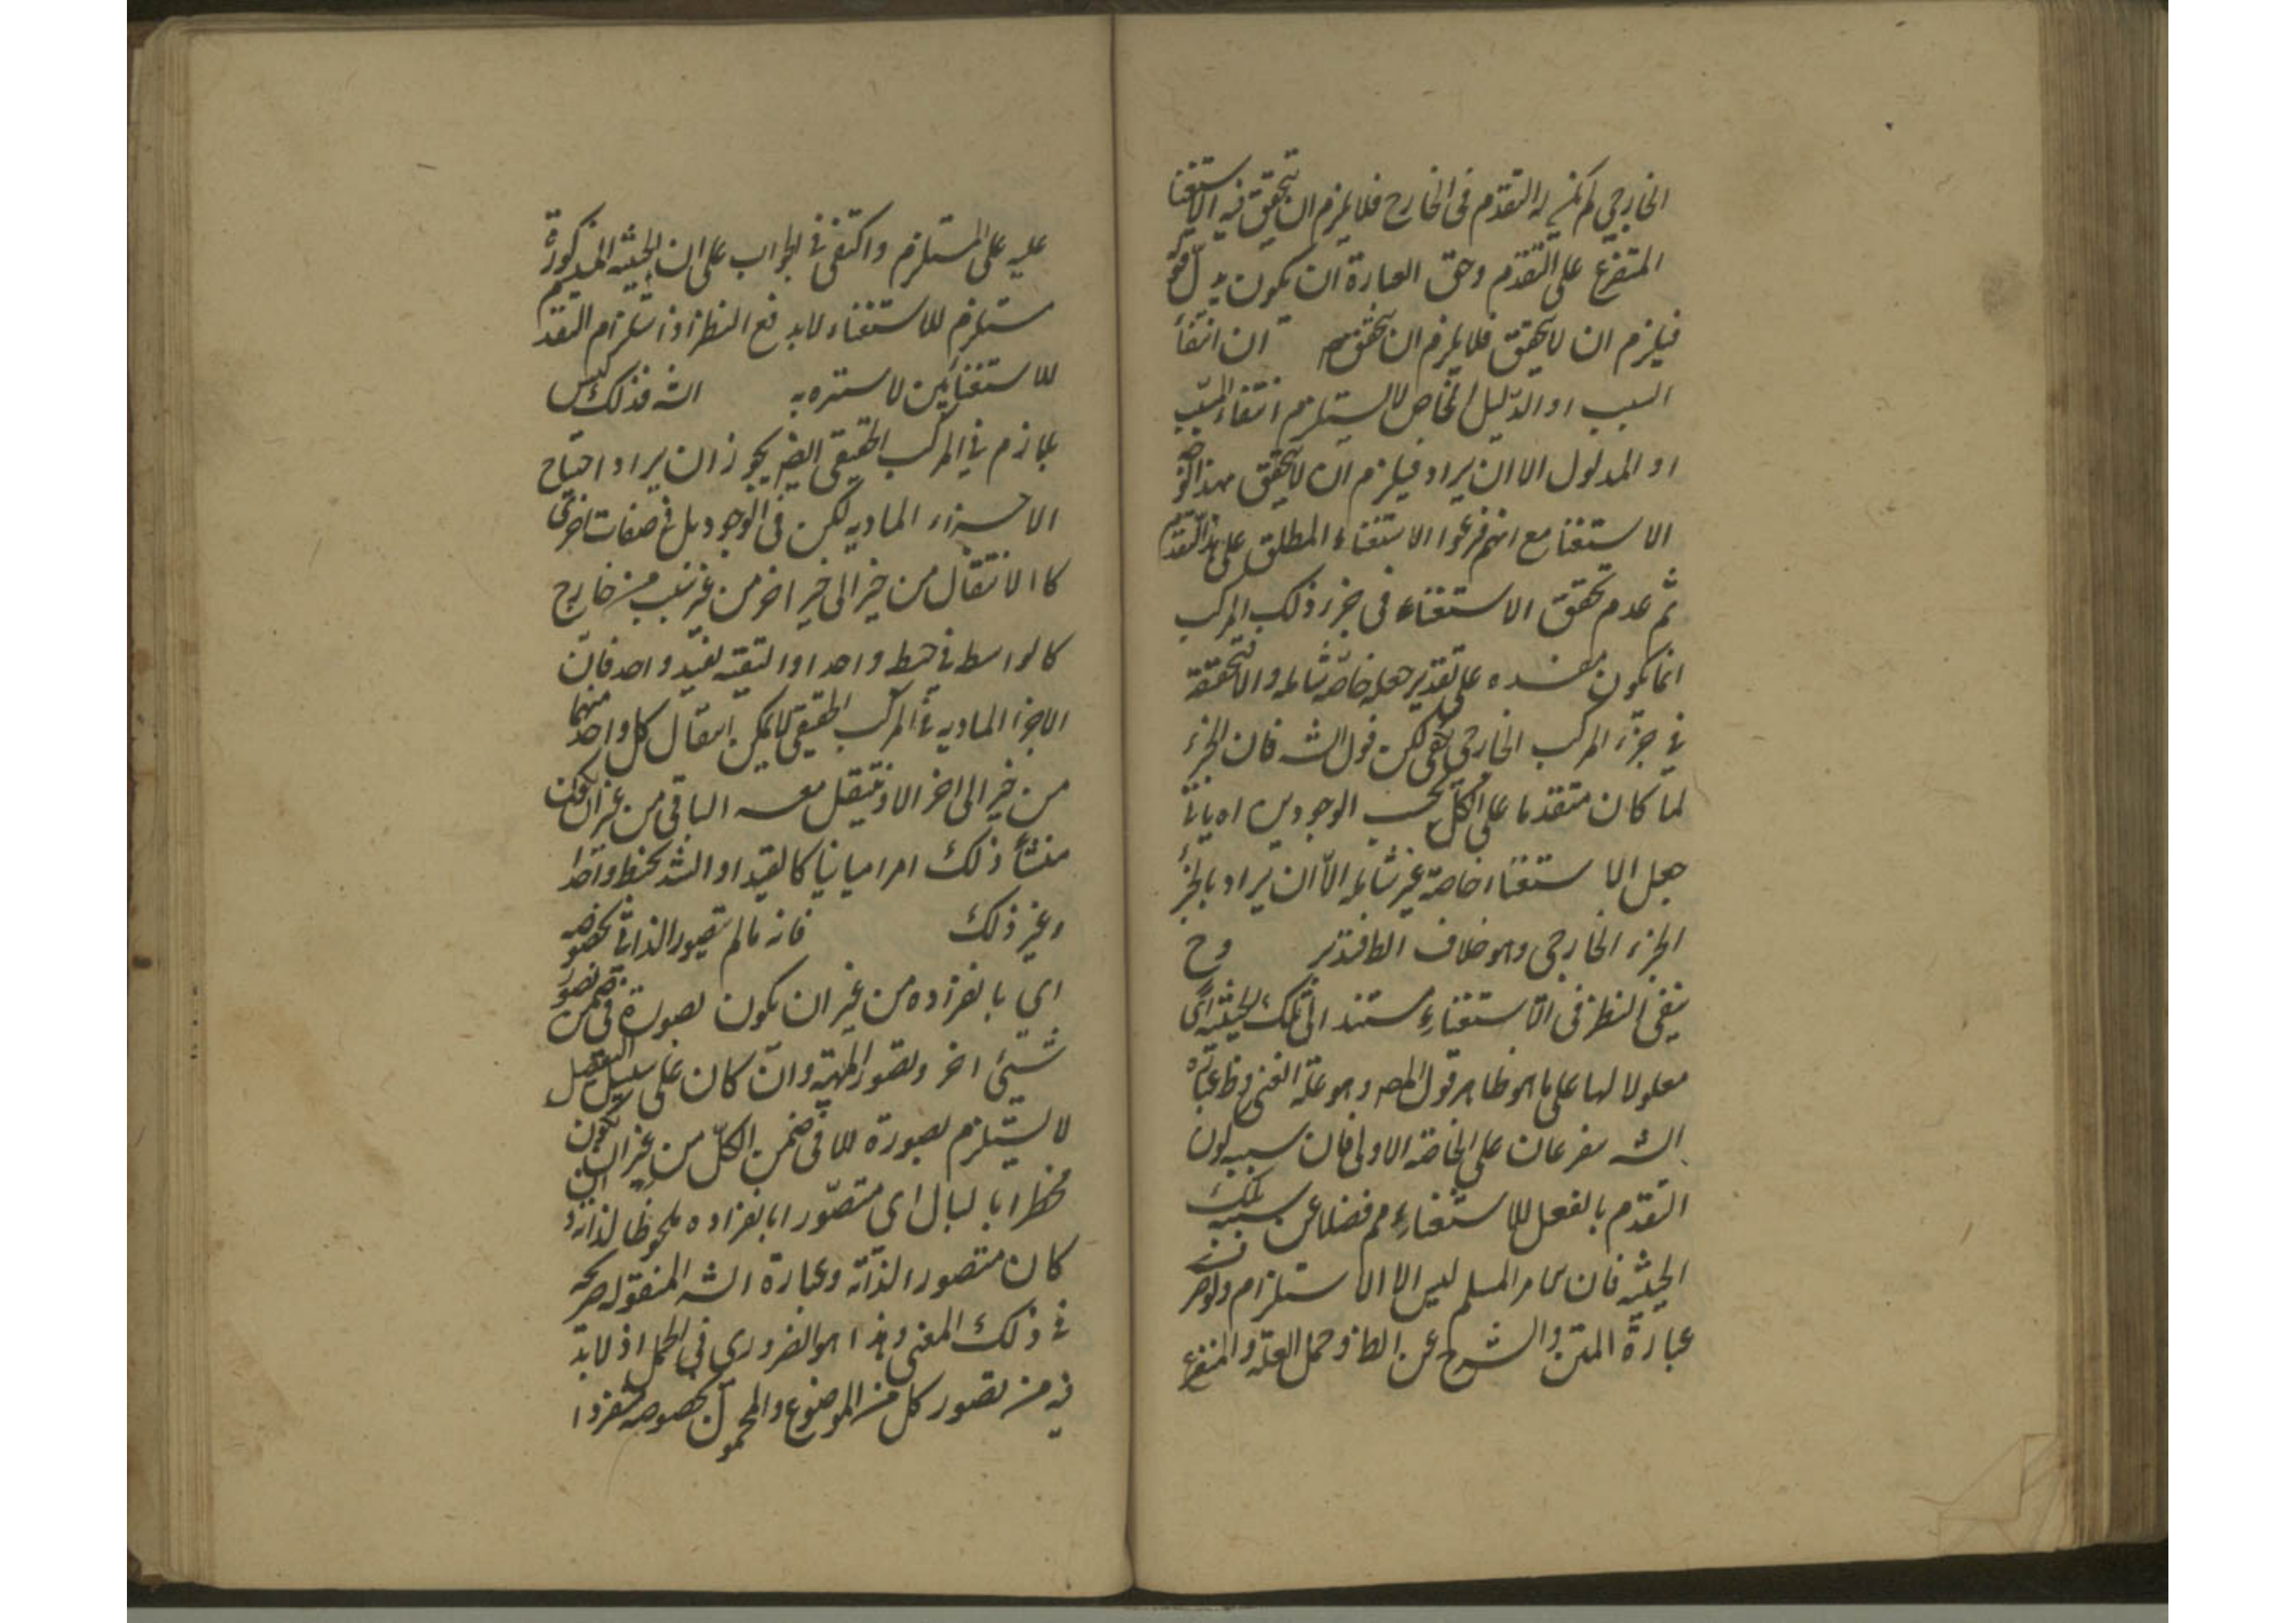 الخارجي لم يكن له التقدم فى الخارج فلا يلزم ان يتحقق فيه الاستغنا
المتفرع على التقدم وحق العبارة ان يكون بدل قوله
فيلزم ان لا يتحقق فلا يلزم ان يتحقق ان انتفا
السبب او الدليل الخاص لا يستلزم انتفاء المسبب
او المدلول الا ان يراد فيلزم ان لا يتحقق بهذا الوجه
الاستغنا مع انهم فرعوا الاستغناء المطلق على هذا التقدم
ثم عدم تحقق الاستغناء فى جزء ذلك المركب
انما يكون مفسده على تقدير جعله خاصة شاملة والا فتحققه
في جزء المركب الخارجي يكفى لكن قول الشه فان الجزء
لما كان متقدما على الكل بحسب الوجودين اه يابى
جعل الاستغناء خاصة غير شاملة الا ان يراد بالجزء
الجزء الخارجي وهو خلاف الظ فتدبر وح
بقى النظر فى الاستغناء مستند الى تلك الحيثية اى
معلولا لها على ما هو ظاهر قول المصه وهو علة الغنى وظ عبارة
الشه متفرعان على الخاصة الاولى فان سببيه لون
التقدم بالفعل للاستغناء مم فضلا عن سببيه تلك
الحيثيه فان المسلم ليس الا الاستلزام ولو صرف
عبارة المتن والشرح عن الظ وحمل العلة والمتفرع
عليه على المستلزم واكتفى في الجواب على ان الحيثيه المذكورة
مستلزم للاستغناء لا يدفع النظر اذ استلزام التقدم
للاستغنائين لا ستره به الشه فذلك ليس
بلازم في المركب الحقيقي ايضه يجوز ان يراد احتياج
الاجزاء الماديه لكن فى الوجود بل في صفات اخرى
كا الانتقال من حيز الى حيز اخر من غير سبب من خارج
كالواسط في خيط واحد او التقيه بقيد واحد فان
الاجزا الماديه في المركب الحقيقي لا يمكن انتقال كل واحد منهما
من حيز الى اخر الا وينتقل معه الباقى من غير ان يكون
منشأ ذلك امرا مباينا كالقيد او الشد بخيط واحد
وغير ذلك فانه ما لم يتصور الذاتي بخصوصه
اى بانفراده من غير ان يكون بصورة فى ضمن تصور
شيئ اخر وتصور المهية وان كان على سبيل التفصيل
لا يستلزم بصورة للا فى ضمن الكل من غير ان يكون
مخطرا بالبال اى متصورا بانفراده ملحوظا لذاته
كان متصورا لذاته وعبارة الشه المنقوله صريحه
في ذلك المعنى وهذا هو الضرورى فى الحمل اذ لابد
فيه من تصور كل من الموضوع والمحمول بخصوصه منفردا